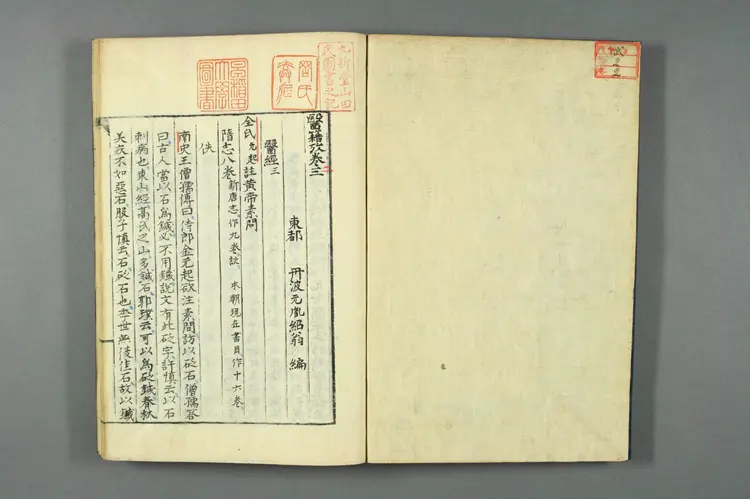 醫籍攷卷三
東都 丹波元胤紹翁 編
醫經三
全氏元起註黃帝素問
隋志八卷新唐志作九卷註 本朝現在書目作十六卷
佚
南史王僧孺傳曰侍郎金元起欲注素問訪以砭石僧孺答
曰古人當以石為鍼必不用鐵說文有此砭字許慎云以石
刺病也東山經高氏之山多鍼石郭璞云可以為砭鍼春秋
美疢不如惡石服子慎云石砭石也季世無復佳石故以鐵
九折堂山田
氏圖書之記